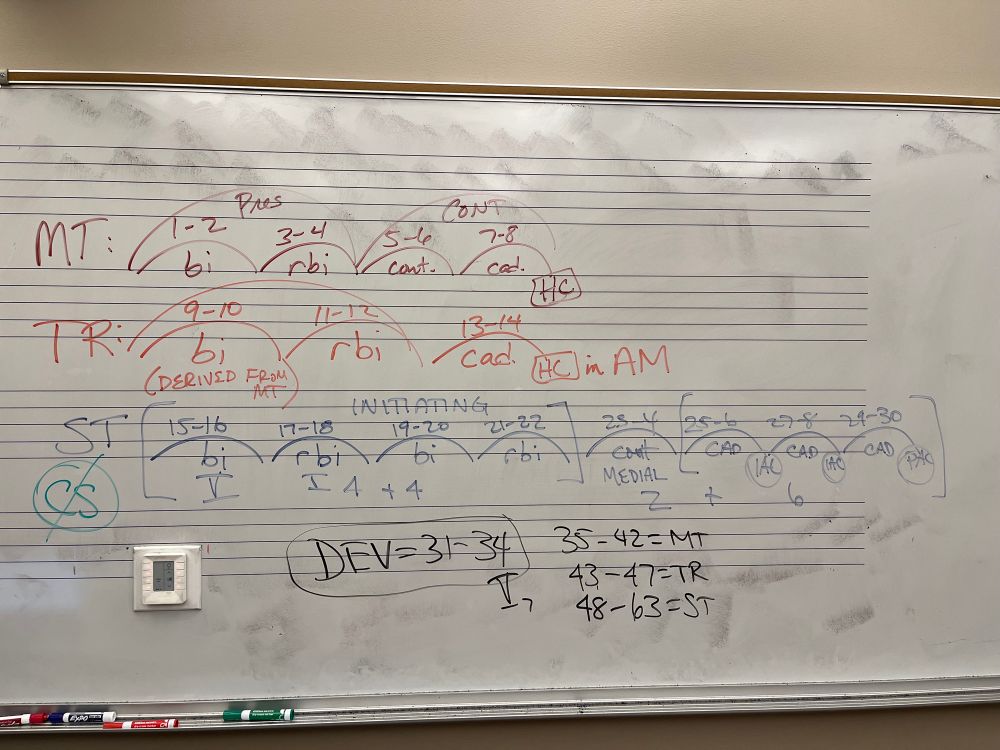 Pres CONT
MT: 1-2 3-4 5-6 7-8
bi rbi cont. cad.
HC
TR: 9-10 11-12 13-14
bi rbi cad. HC in AM
(DERIVED FROM MT)
INITIATING
ST 15-16 17-18 19-20 21-22 23-4 25-6 27-8 29-30
bi rbi bi rbi cont CAD IAC CAD IAC CAD PAC
MEDIAL
CS V I 4 + 4 2 + 6
DEV=31-34 35-42=MT
V7 43-47=TR
48-63=ST
EXPO